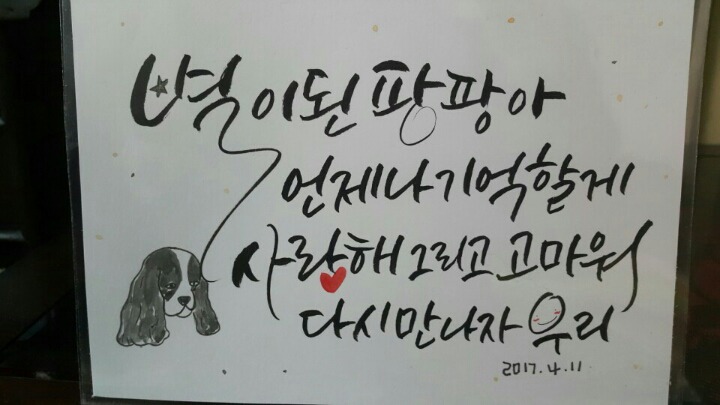 별이된 팡팡아
언제나 기억할게
사랑해 그리고 고마워
다시만나자 우리
2017.4.11